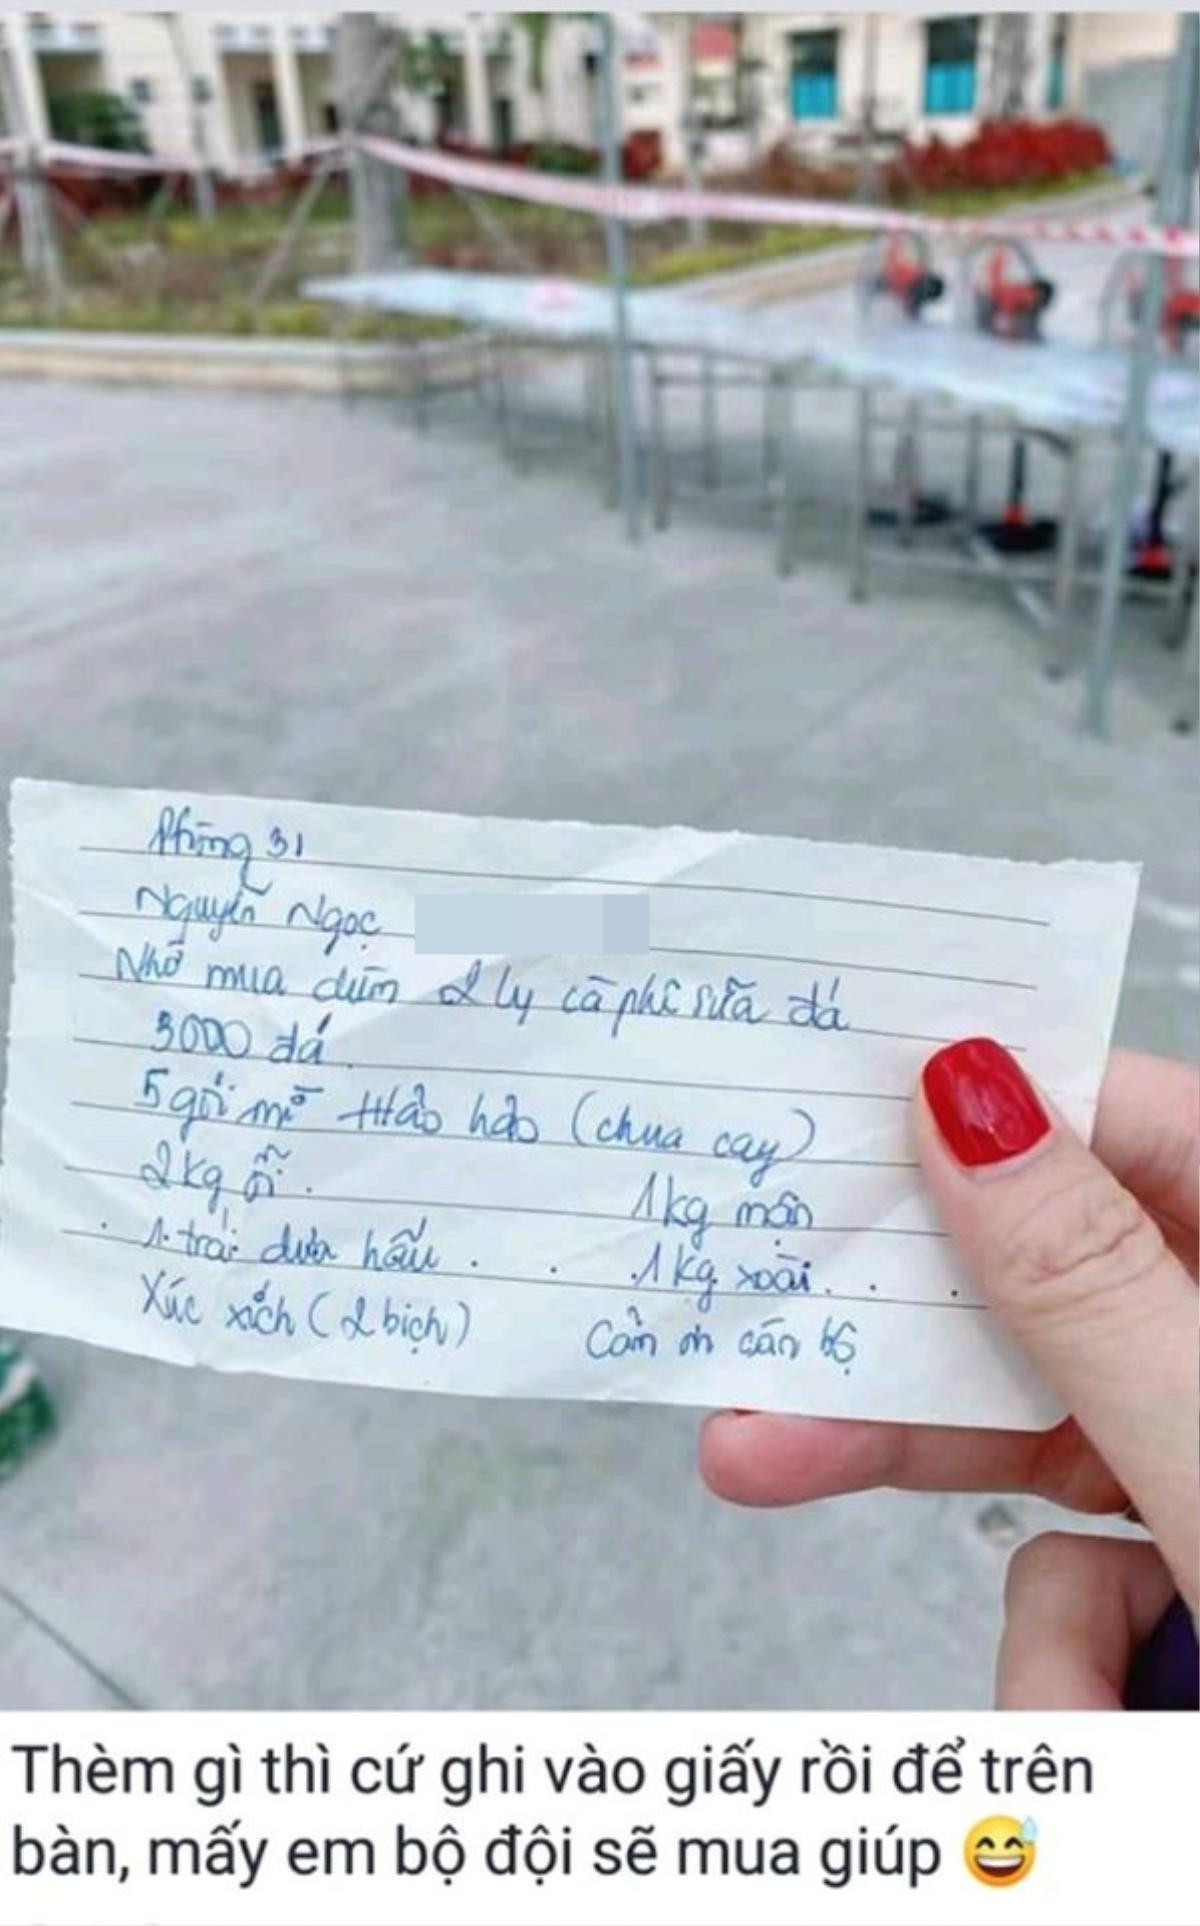 Phòng 31
Nguyễn Ngọc
Nhờ mua dùm 2 ly cà phê sữa đá
3000 đá.
5 gói mì Hảo hảo (chua cay)
2kg ổi. 1kg mận
1 trái dưa hấu. 1kg xoài.
Xúc xích (2 bịch) Cảm ơn cán bộ
Thèm gì thì cứ ghi vào giấy rồi để trên
bàn, mấy em bộ đội sẽ mua giúp 😅